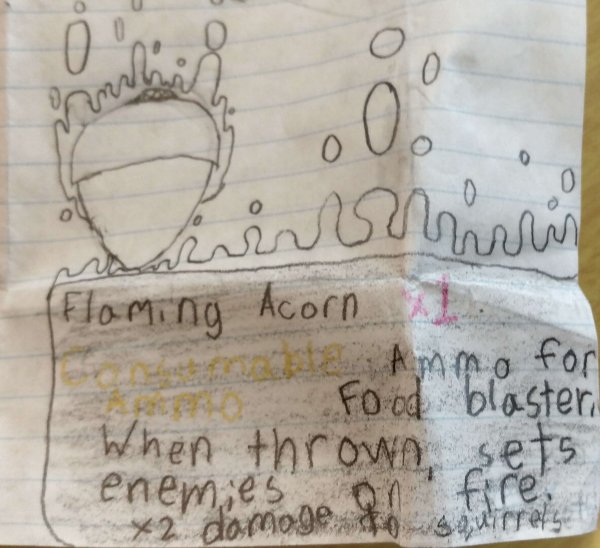 Flaming Acorn x1
Consumable Ammo for
Ammo Food blaster.
When thrown, sets
enemies on fire.
x2 damage to squirrels